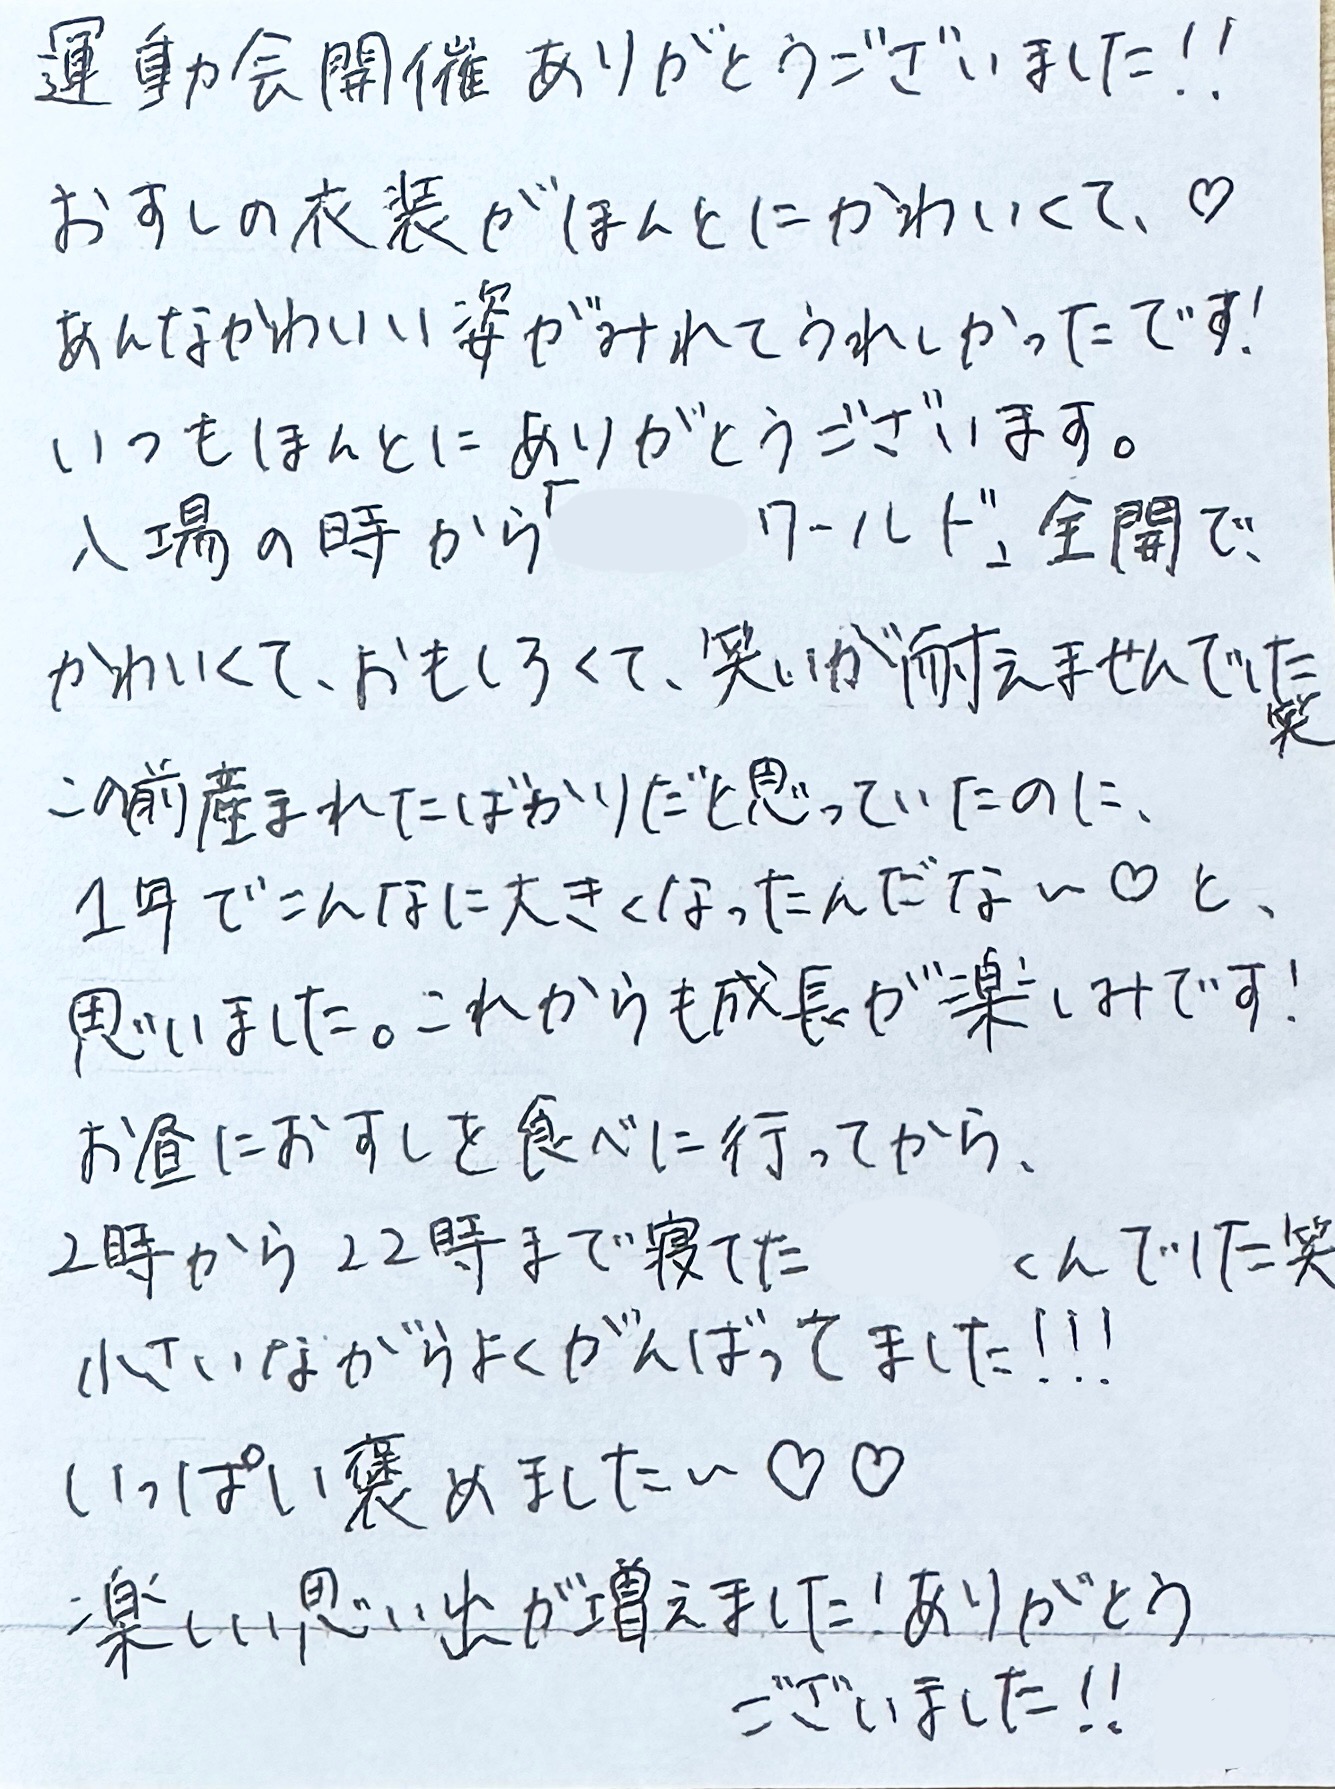 運動会開催ありがとうございました!!
おすしの衣装がほんとにかわいくて、♡
あんなかわいい姿がみれてうれしかったです!
いつもほんとにありがとうございます。
入場の時から「 ワールド」全開で、
かわいくて、おもしろくて、笑いが耐えませんでした笑
この前産まれたばかりだと思っていたのに、
1年でこんなに大きくなったんだな〜♡と、
思いました。これからも成長が楽しみです!
お昼におすしを食べに行ってから、
2時から22時まで寝てた くんでした笑
小さいながらよくがんばってました!!!
いっぱい褒めました〜♡♡
楽しい思い出が増えました!ありがとう
ございました!!